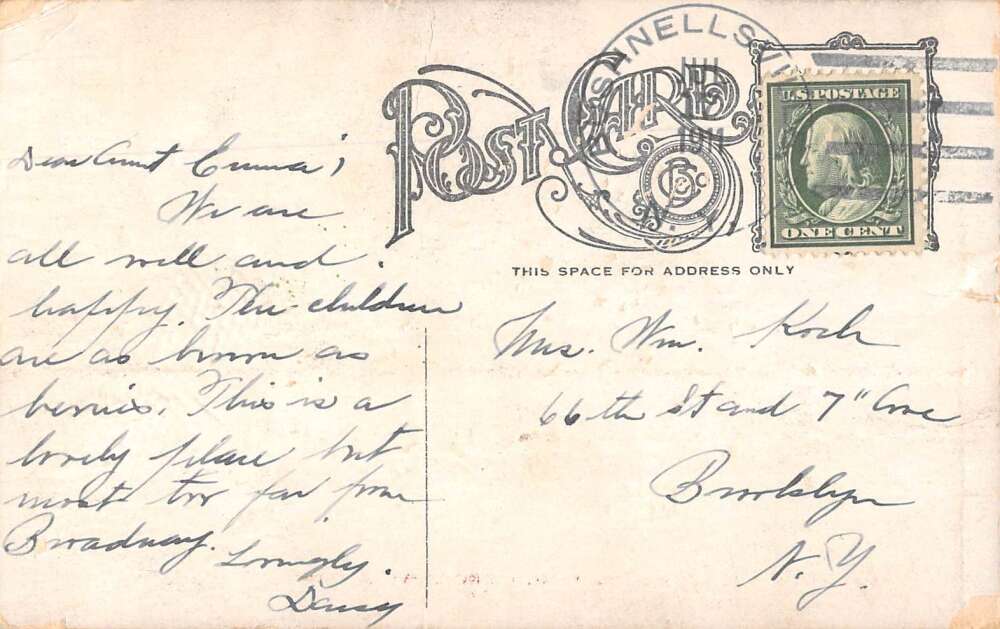 SHNELLSVI
JUL
1911
N. Y.
POST CARD
U.S. POSTAGE
ONE CENT
THIS SPACE FOR ADDRESS ONLY
Dear Aunt Emma;
We are
all well and
happy. The children
are as brown as
berries. This is a
lovely place but
most too far from
Broadway.
Lovingly.
Daisy
Mrs. Wm. Koch
66th St and 7" Ave
Brooklyn
N. Y.